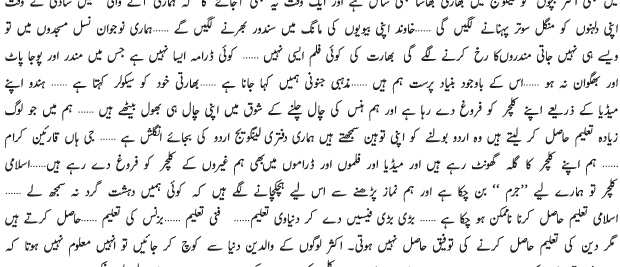 اپنی دلہنوں کو منگل سوتر پہنانے لگیں گی ......خاوند اپنی بیویوں کی مانگ میں سندور بھرنے لگیں گے ......ہماری نوجوان نسل مسجدوں میں تو
ویسے ہی نہیں جاتی مندروں کا رخ کرنے لگے گی بھارت کی کوئی فلم ایسی نہیں ...... کوئی ڈرامہ ایسا نہیں ہے جس میں مندر اور پوجا پاٹ
اور بھگوان نہ ہو ......اس کے باوجود بنیاد پرست ہم ہیں ......مذہبی جنونی ہمیں کہا جانا ہے ......بھارتی خود کو سیکولر کہتا ہے ...... ہندو اپنے
میڈیا کے ذریعے اپنے کلچر کو فروغ دے رہا ہے اور ہم ہنس کی چال چلنے کے شوق میں اپنی چال ہی بھول بیٹھے ہیں ...... ہم میں جو لوگ
زیادہ تعلیم حاصل کر لیتے ہیں وہ اردو بولنے کو اپنی توہین سمجھتے ہیں ہماری دفتری لینگویج اردو کی بجائے انگلش ہے ...... جی ہاں قارئین کرام
...... ہم اپنے کلچر کا گلہ گھونٹ رہے ہیں اور میڈیا اور فلموں اور ڈراموں میں بھی ہم غیروں کے کلچر کو فروغ دے رہے ہیں......اسلامی
کلچر تو ہمارے لیے ”جرم“ بن چکا ہے اور ہم نماز پڑھنے سے اس لیے ہچکچانے لگے ہیں کہ کوئی ہمیں دہشت گرد نہ سمجھ لے ......
اسلامی تعلیم حاصل کرنا ناممکن ہو چکا ہے ...... بڑی بڑی فیسیں دے کر دنیاوی تعلیم...... فنی تعلیم ......بزنس کی تعلیم ......حاصل کرتے ہیں
مگر دین کی تعلیم حاصل کرنے کی توفیق حاصل نہیں ہوتی۔ اکثر لوگوں کے والدین دنیا سے کوچ کر جائیں تو انہیں معلوم نہیں ہوتا کہ